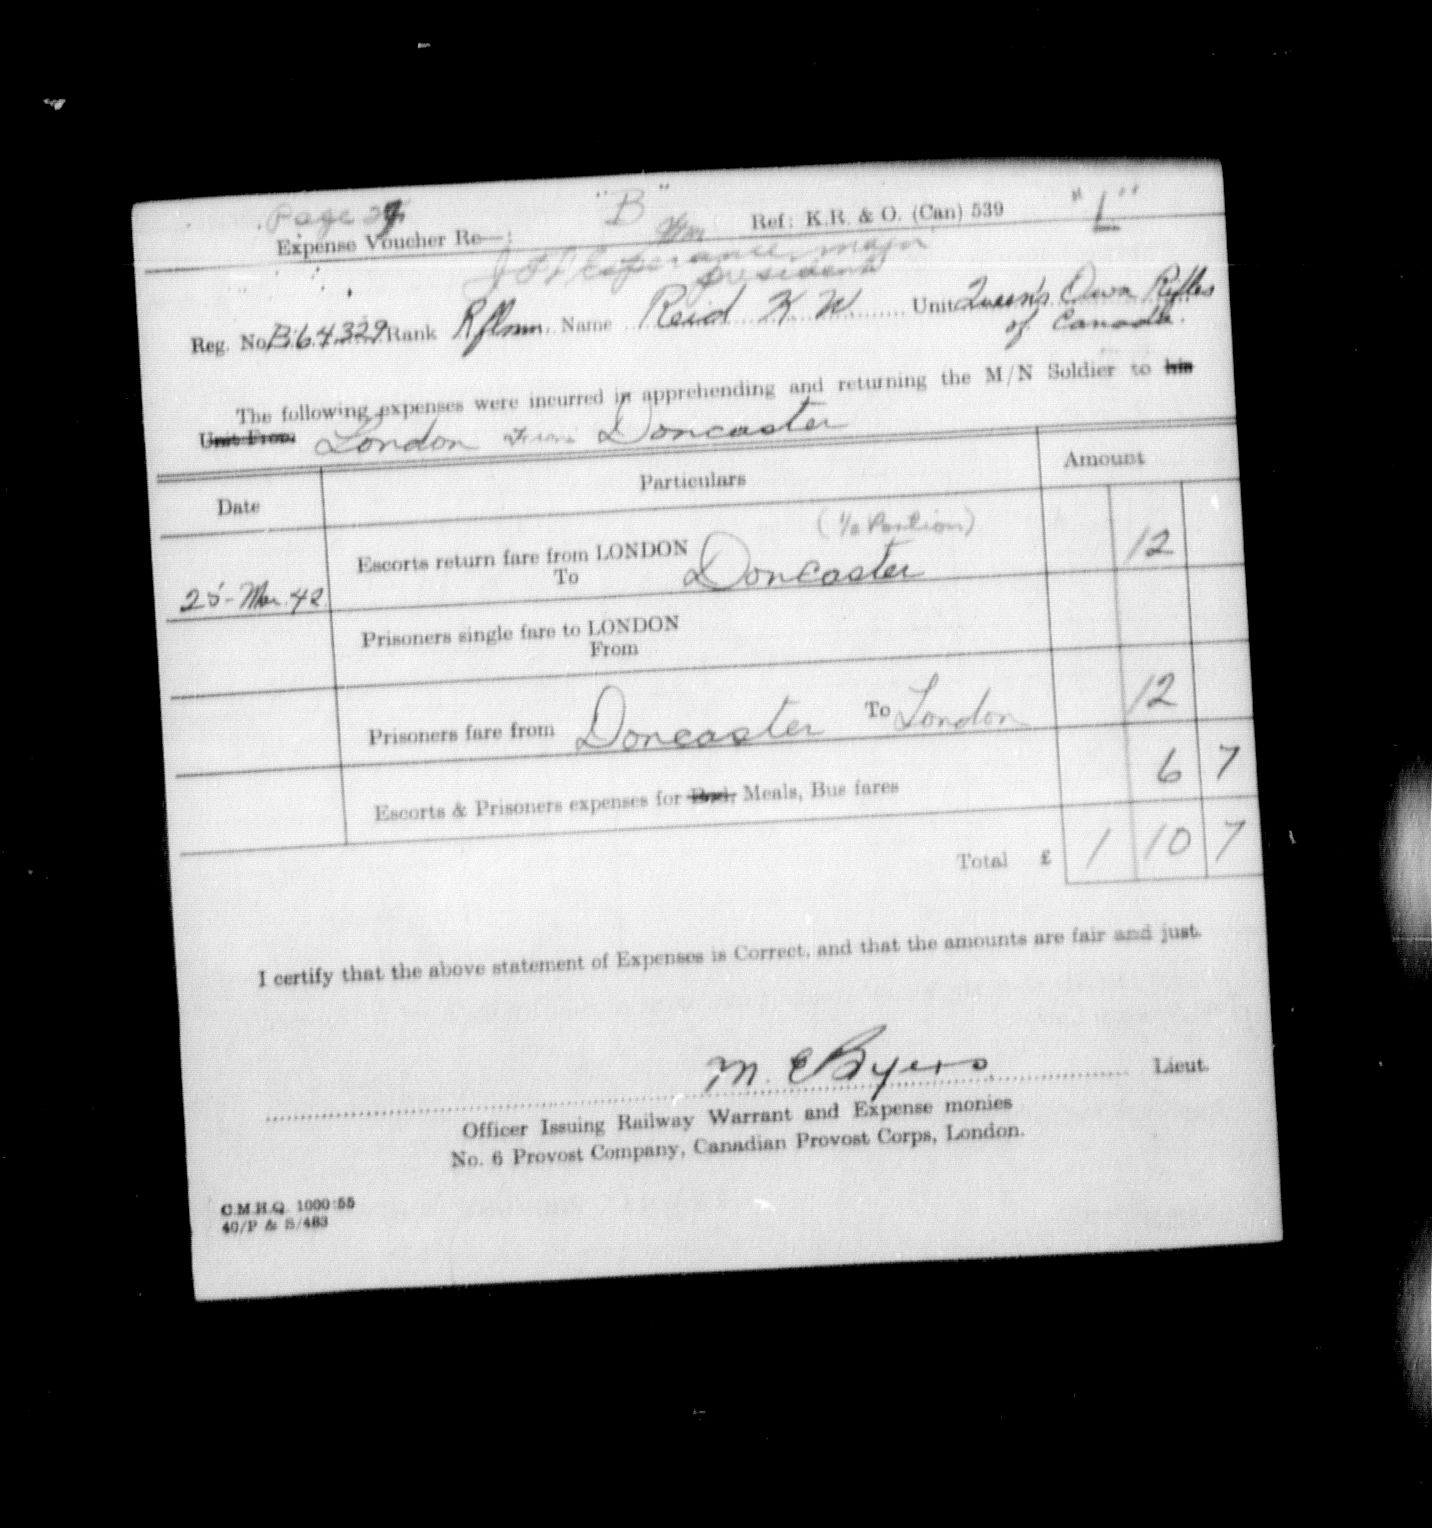 "B"
"L"
Ref: K.R. & O. (Can) 539
Page
Expense Voucher Re—:
Major
President
Reg. No. B.64329 Rank Rflmn. Name Reid K W Unit Queen's Own Rifles
of Canada.
The following expenses were incurred in apprehending and returning the M/N Soldier to his
Unit From. London From Doncaster
Date Particulars Amount
(1/2 Portion)
Escorts return fare from LONDON
To Doncaster 12
25-Mar. 42
Prisoners single fare to LONDON
From
Prisoners fare from Doncaster To London 12
Escorts & Prisoners expenses for Bed, Meals, Bus fares 6 7
Total £ 1 10 7
I certify that the above statement of Expenses is Correct, and that the amounts are fair and just.
M. E Byers Lieut.
Officer Issuing Railway Warrant and Expense monies
No. 6 Provost Company, Canadian Provost Corps, London.
C.M.H.Q. 1000:55
40/P & S/483